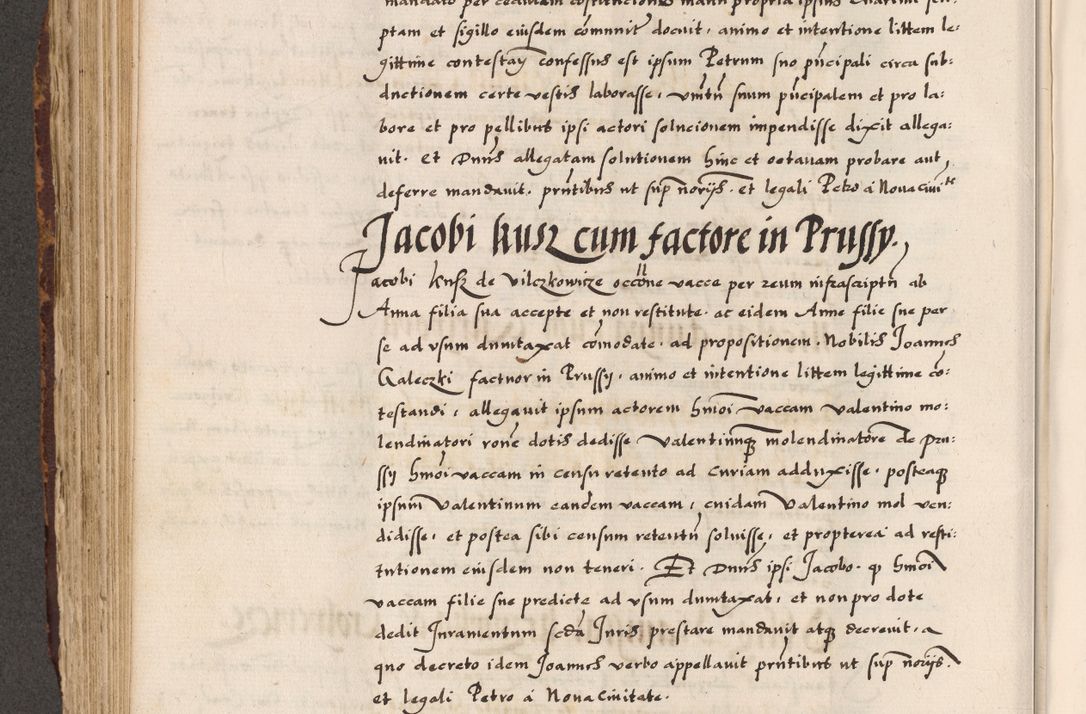 mandato per cedulam
ptam et sigillo eiusdem cōmunit docuit, animo et intentione littem le:
gittime contestañ confessus est ipsum Petrum suo pñcipali circa sub:
ductionem certe vestis laborasse, vmtñ suum pñcipalem et pro la:
bore et pro pellibus ipsi actori solucionem impendisse dixit allega:
uit. et Dnus allegatam solutionem hinc et octauam probare aut
deferre mandauit. pñtibus ut sup noĩis. et legali Petro á Nova ciuite
Jacobi kusz cum factore in Prussy.
Jacobi Kusz de Vilczkowicze occōne vacce per reum infrascriptū ab
Anna filia sua accepte et non restitute. ac eidem Anne filie sue per
se ad vsum dumtaxat cōmodate. ad propositionem. Nobilis Joannes
Galeczki factuor in Prussy, animo et intentione littem legittime cō:
testandi, allegauit ipsum actorem hmōi vaccam valentino mo:
lendinatori rōne dotis dedisse valentinumq molendinatorē de Pru:
ssy hmōi vaccam in censu retento ad curiam adduxisse, posteaq
ipsum Valentinum eandem vaccam, cuidam Valentino mol ven:
didisse, et postea sibi censum retentū soluisse, et propterea ad resti:
tutionem eiusdem non teneri. Et Dnus ipsi Jacobo. q hmōi
vaccam filie sue predicte ad vsum dumtaxat, et non pro dote
dedit Juramentum scdū Juris prestare mandauit atq decreuit, a
quo decreto idem Joannes verbo appellauit pñtibus ut sup noĩis.
et legali Petro á Nova Ciuitate.